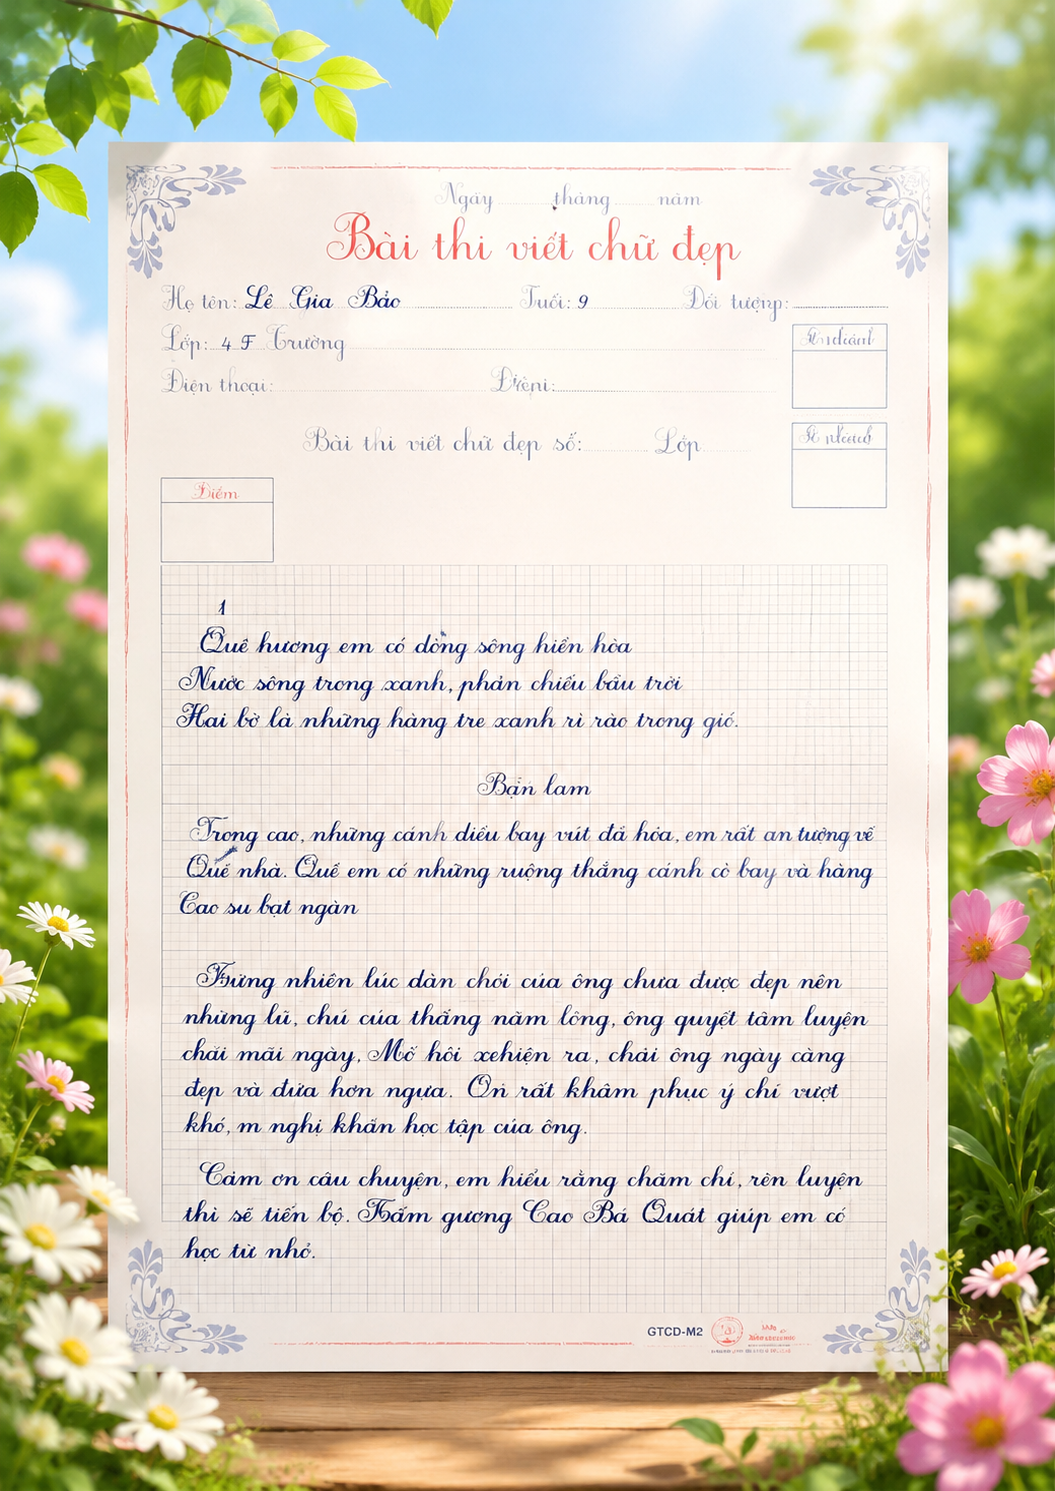 Ngày tháng năm
Bài thi viết chữ đẹp
Họ tên: Lê Gia Bảo Tuổi: 9 Đối tượng:
Lớp: 4 F Trường
Điện thoại:
Bài thi viết chữ đẹp số: Lớp
Điểm
1
Quê hương em có dòng sông hiền hòa
Nước sông trong xanh, phản chiếu bầu trời
Hai bờ là những hàng tre xanh rì rào trong gió.
Bạn lam
Trong cao, những cánh diều bay vút đả hòa, em rất an tường về
Quế nhà. Quê em có những ruộng thẳng cánh cò bay và hàng
Cao su bạt ngàn
nhiên lúc dàn chói của ông chưa được đẹp nên
những lũ, chú của thắng năm lông, ông quyết tâm luyện
chải mãi ngày, Mồ hôi xehiện ra, chải ông ngày càng
đẹp và đứa hơn ngựa. Ơn rất khâm phục ý chí vượt
khó, m nghị khăn học tập của ông.
Cảm ơn câu chuyện, em hiểu rằng chăm chỉ, rèn luyện
thì sẽ tiến bộ. gương Cao Bá Quát giúp em có
học từ nhỏ.
GTCD-M2